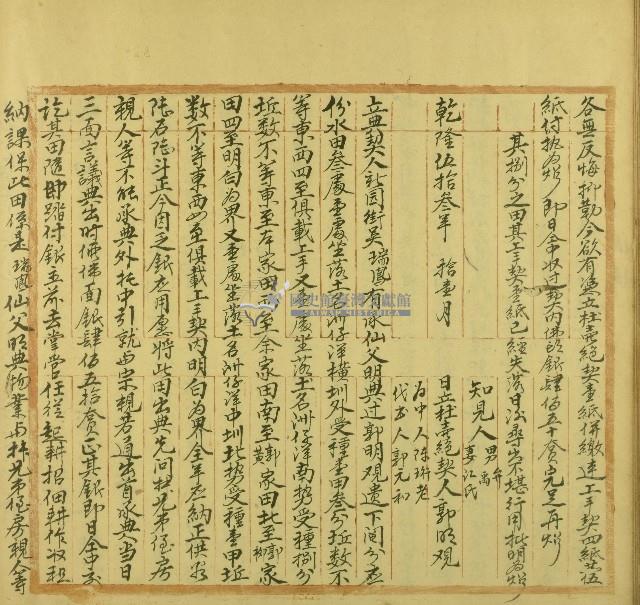 各無反悔抑勒今欲有憑立杜賣絕契壹紙併繳連上手契四紙共伍
紙付執為炤 即日仝中收過契內佛頭銀肆佰五十貳完足再炤
其捌分之田其上手契壹紙已經失落日後尋出不堪行用批明為炤
知見人 男
妻江氏
日立杜賣絕契人郭明觀
為中人陳
代書人郭元和
乾隆伍拾叁年 拾壹月
立典契人社園街吳瑞鳳有承仙父明典過郭明觀遺下鬮分
份水田叁處壹處坐落土名洲仔洋橫圳外受種壹田叁分坵數不
等東西四至俱載上手又壹處坐落土名洲仔洋南勢受種捌分
坵數不等東至 家田西至余家田南至 家田北至 家
田四至明白為界又壹處坐落土名洲仔洋中圳北勢受種壹甲坵
數不等東西四至俱載上手契內明白為界全年 納正供粟
陸石陸斗正今因乏銀 用愿將此田出典先問 兄弟侄房
親人等不能承典外托中引就 宗親 出首承典當日
三面言議典出時價佛面銀肆佰五拾貳 正其銀即日仝中交
訖其田隨即踏付銀 前去掌管任從起耕招佃耕作收租
納課保此田係是瑞鳳仙父明典物業 兄弟侄房親人等
國史館臺灣文獻館
TAIWAN HISTORICA